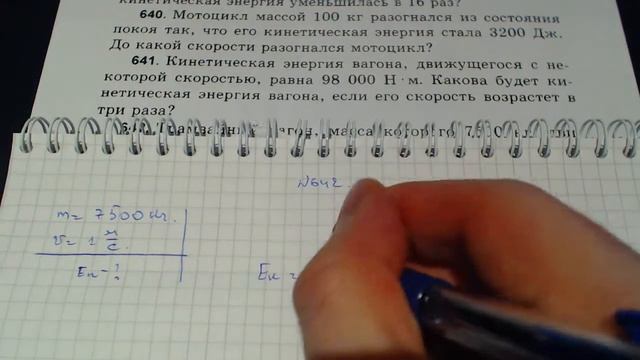 кинетическая энергия уменьшилась в 16 раз?
640. Мотоцикл массой 100 кг разогнался из состояния
покоя так, что его кинетическая энергия стала 3200 Дж.
До какой скорости разогнался мотоцикл?
641. Кинетическая энергия вагона, движущегося с не-
которой скоростью, равна 98 000 Н·м. Какова будет ки-
нетическая энергия вагона, если его скорость возрастет в
три раза?
вагон, масса которого 7500
№642
m = 7500 кг.
v = 1 м/с.
Eк - ?
Eк =